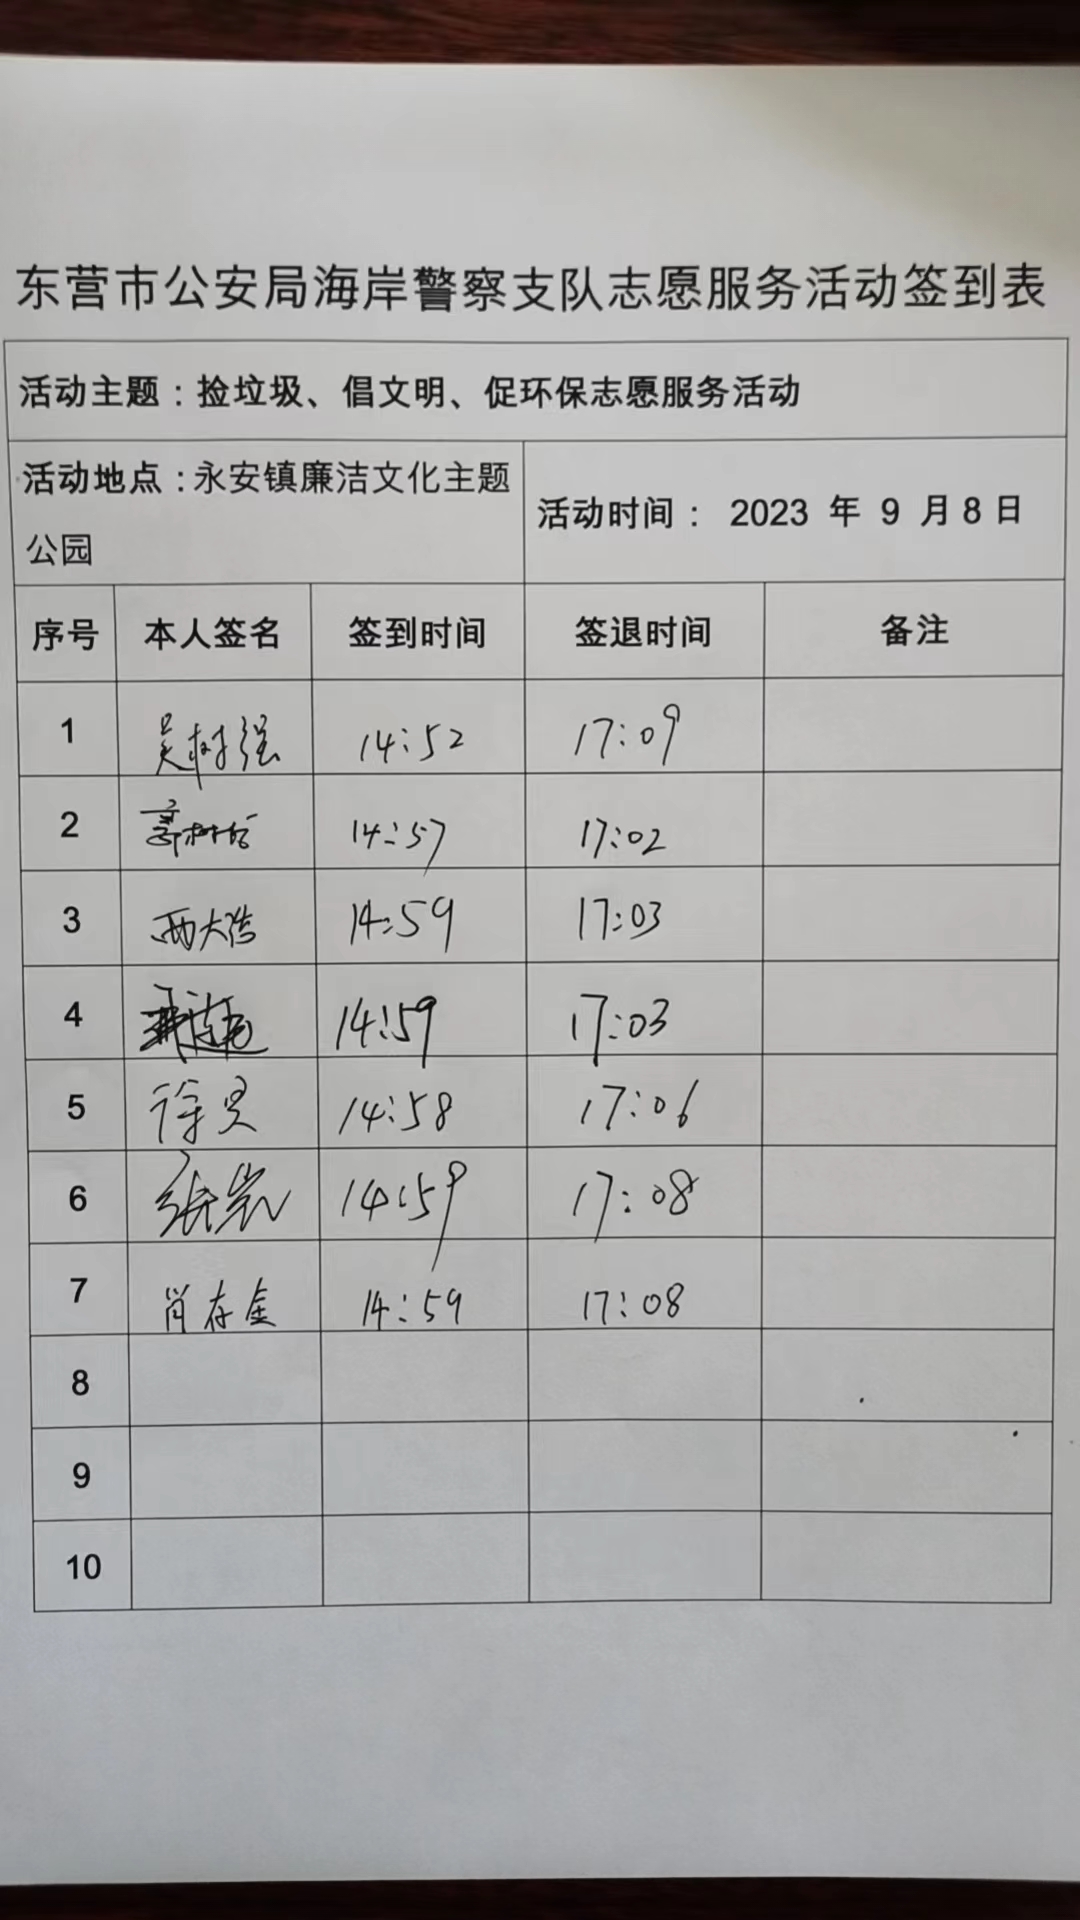 东营市公安局海岸警察支队志愿服务活动签到表
活动主题：捡垃圾、倡文明、促环保志愿服务活动
活动地点：永安镇廉洁文化主题
公园
活动时间： 2023 年 9 月 8 日
序号 本人签名 签到时间 签退时间 备注
1 吴树强 14:52 17:09
2 14:57 17:02
3 14:59 17:03
4 14:59 17:03
5 14:58 17:06
6 张岩 14:59 17:08
7 肖存金 14:59 17:08
8
9
10